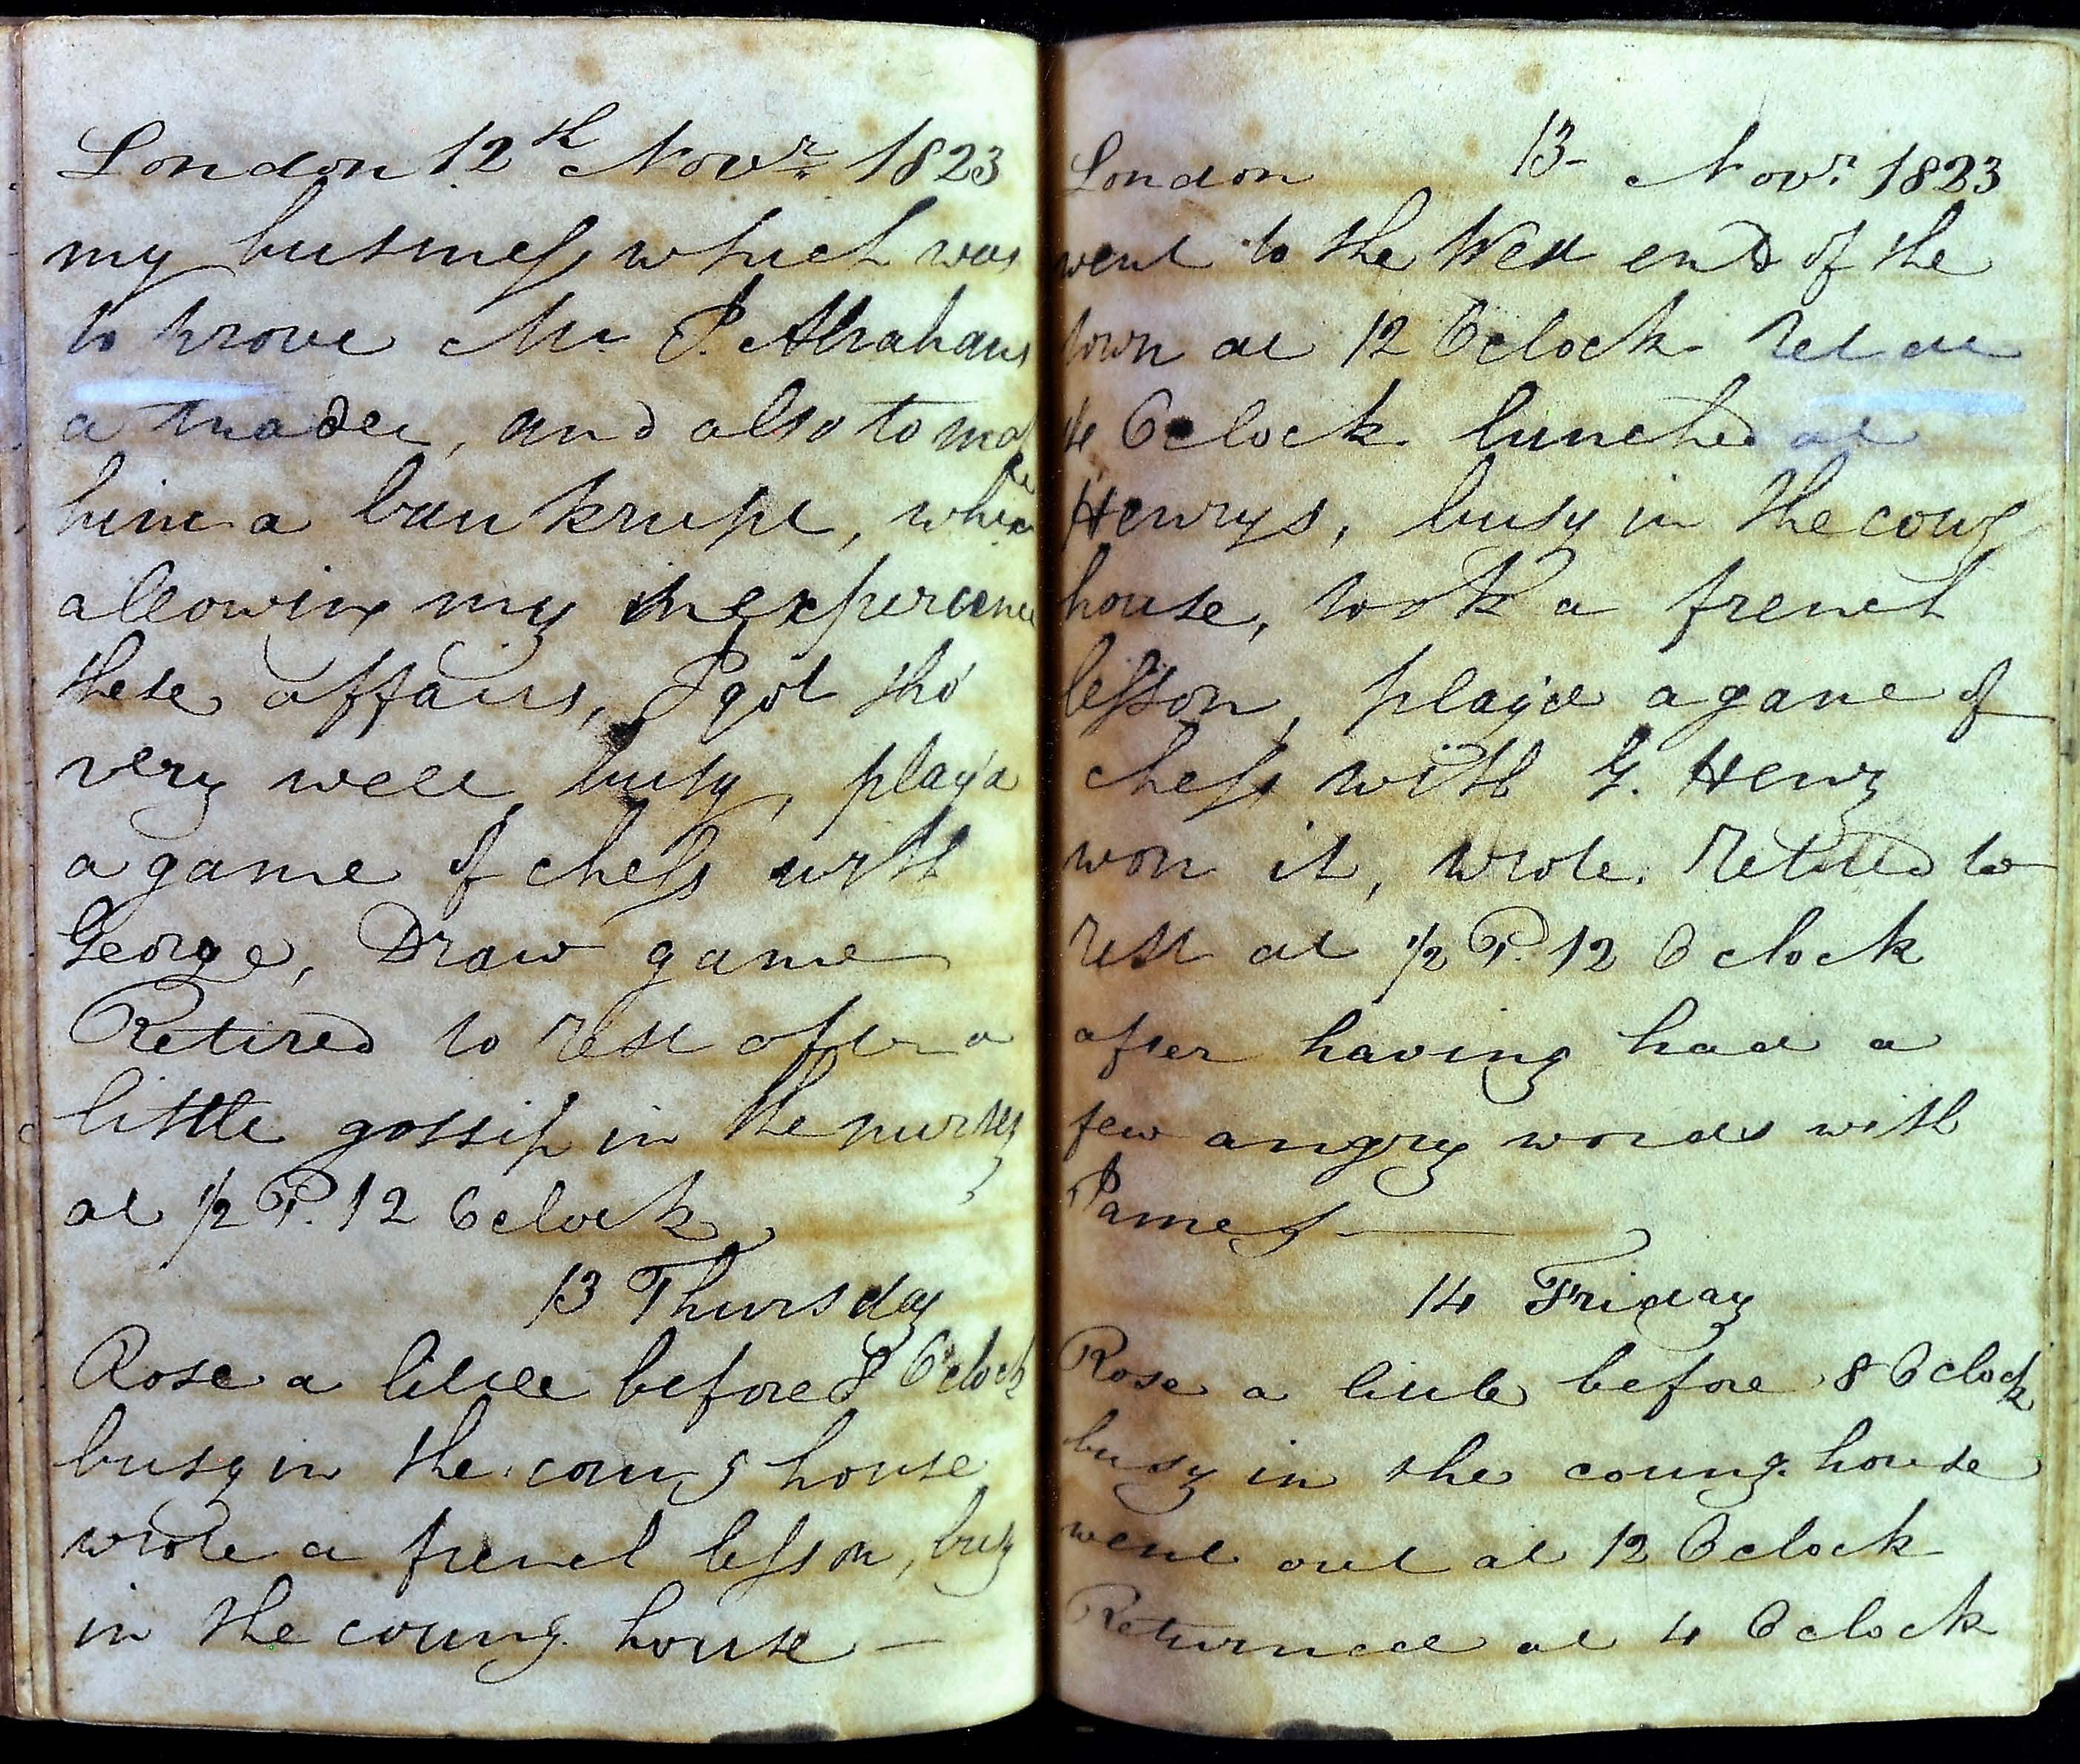 London 12th Novr 1823
my business which was
to prove Mr. P. Abrahams
a trader, and also to make
him a bankrupt, which
allowing my inexperience
these affairs, I got thro'
very well, busy, play'd
a game of chess with
George, Draw game
Retired to rest after a
little gossip in the nursery
at 1/2 P. 12 Oclock
13 Thursday
Rose a little before 8 Oclock
busy in the coung house
wrote a french lesson, busy
in the coung. house —
London 13 - Novr. 1823
went to the West end of the
town at 12 Oclock Ret at
4 Oclock lunched at
Henrys, busy in the coung
house, took a french
lesson, play'd a game of
chess with G. Henry
won it, wrote. Retired to
rest at 1/2 P. 12 Oclock
after having had a
few angry words with
James —
14 Friday
Rose a little before 8 Oclock
busy in the coung. house
went out at 12 Oclock
Returned at 4 Oclock